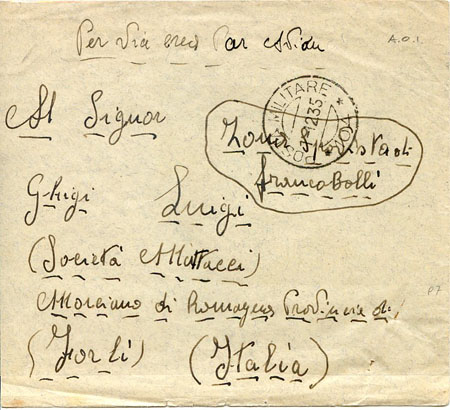 Per via erea Par Avion
A.O.I
Al Signor
POSTA MILITARE
12 35
Zona sprovista di
francobolli
Ghigi Luigi
(Società Mattacci)
Morciano di Romagna Provincia di
(Forlì) (Italia)
P7